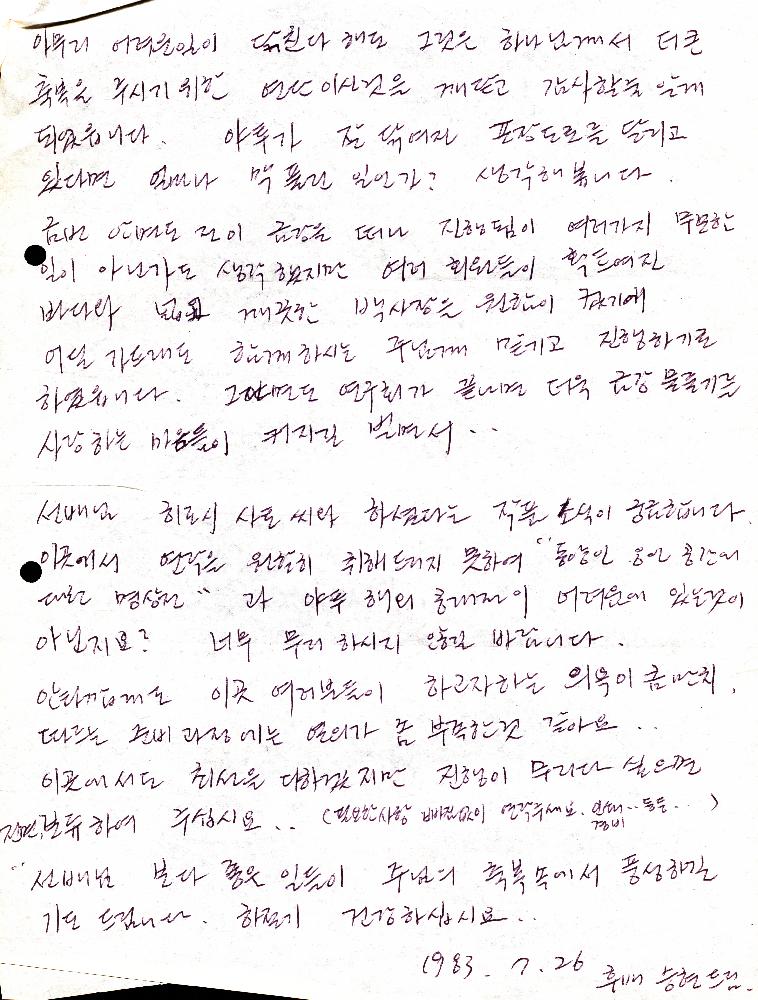 아무리 어려운일이 닥친다 해도 그것은 하나님께서 더큰
축복을 주시기 위한 연단이신것을 깨닫고 감사할줄 알게
되었읍니다. 야투가 잘 닦여진 포장도로를 달리고
있다면 얼마나 맥 풀린 일인가? 생각해 봅니다.
금번 안면도 전이 금강을 떠나 진행됨이 여러가지 무모한
일이 아닌가도 생각 했지만 여러 회원들이 확트여진
바다와 넓고 깨끗한 백사장을 원함이 컸기에
어딜 가드래도 함께하시는 주님께 맡기고 진행하기로
하였읍니다. 안면도 연구회가 끝나면 더욱 금강 물줄기를
사랑하는 마음들이 커지길 빌면서..
선배님 히로시 사또 씨와 하셨다는 작품 소식이 궁금합니다.
이곳에서 연락을 원활히 취해드리지 못하여 "동양인
명상전" 과 야투 해외 초대전이 어려움에 있는것이
아닌지요? 너무 무리 하시지 않길 바랍니다.
안타깝게도 이곳 여러분들이 하고자하는 의욕이 큼만치,
따르는 준비 과정에는 열의가 좀 부족한것 같아요..
이곳에서도 최선을 다하겠지만 진행이 무리다 싶으면
보류하여 주십시요.. (필요한사항 빠짐없이 연락주세요. 경비 등등..)
"선배님 보다 좋은 일들이 주님의 축복속에서 풍성하길
기도 드립니다. 하절기 건강하십시요..
1983. 7. 26 후배 승현드림.